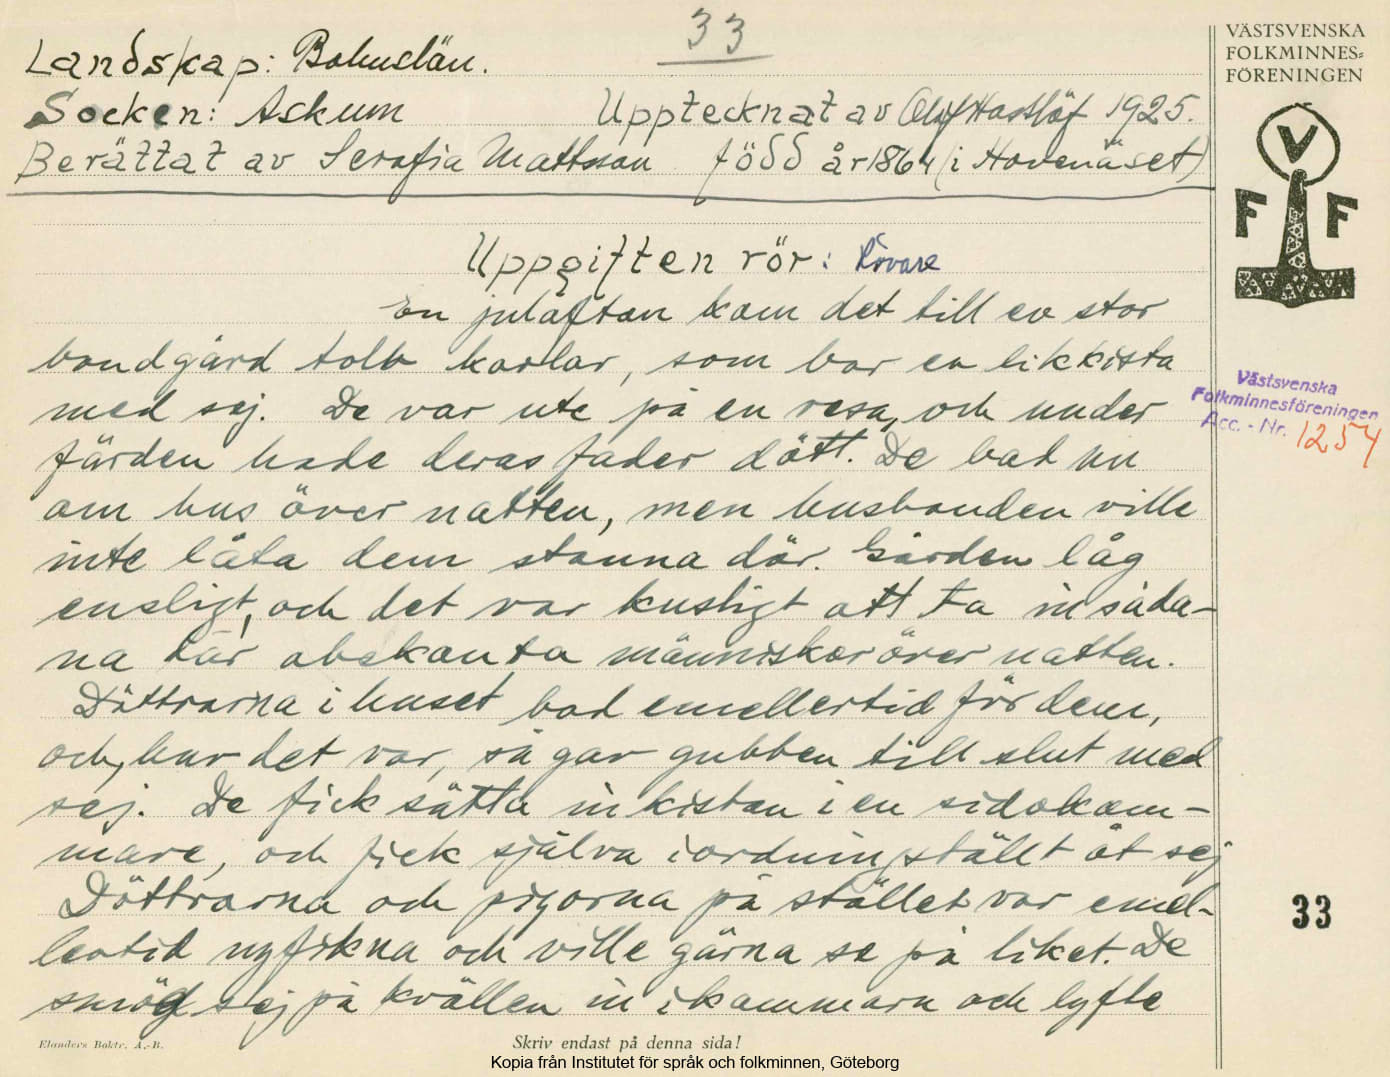 33
VÄSTSVENSKA
FOLKMINNES=
FÖRENINGEN
Landskap: Bohuslän.
Socken: Askum Upptecknat av Olof Hasslöf 1925.
Berättat av Serafia Mattsson född år 1864 (i Hovenäset)
V
F F
Uppgiften rör: Rövare
En julafton kom det till en stor
bondgård tolv karlar, som bar en likkista
med sej. De var ute på en resa, och under
färden hade deras fader dött. De bad nu
om hus över natten, men husbonden ville
inte låta dem stanna där. Gården låg
ensligt, och det var kusligt att ta in såda-
na där obekanta människor över natten.
Döttrarna i huset bad emellertid för dem,
och, hur det var, så gav gubben till slut med
sej. De fick sätta in kistan i en sidokam-
mare, och fick själva iordningställt åt sej
Döttrarna och pigorna på stället var emel-
lertid nyfikna och ville gärna se på liket. De
smög sej på kvällen in i kammarn och lyfte
Västsvenska
Folkminnesföreningen
Acc. - Nr. 1254
33
Elanders Boktr. A.-B.
Skriv endast på denna sida!
Kopia från Institutet för språk och folkminnen, Göteborg